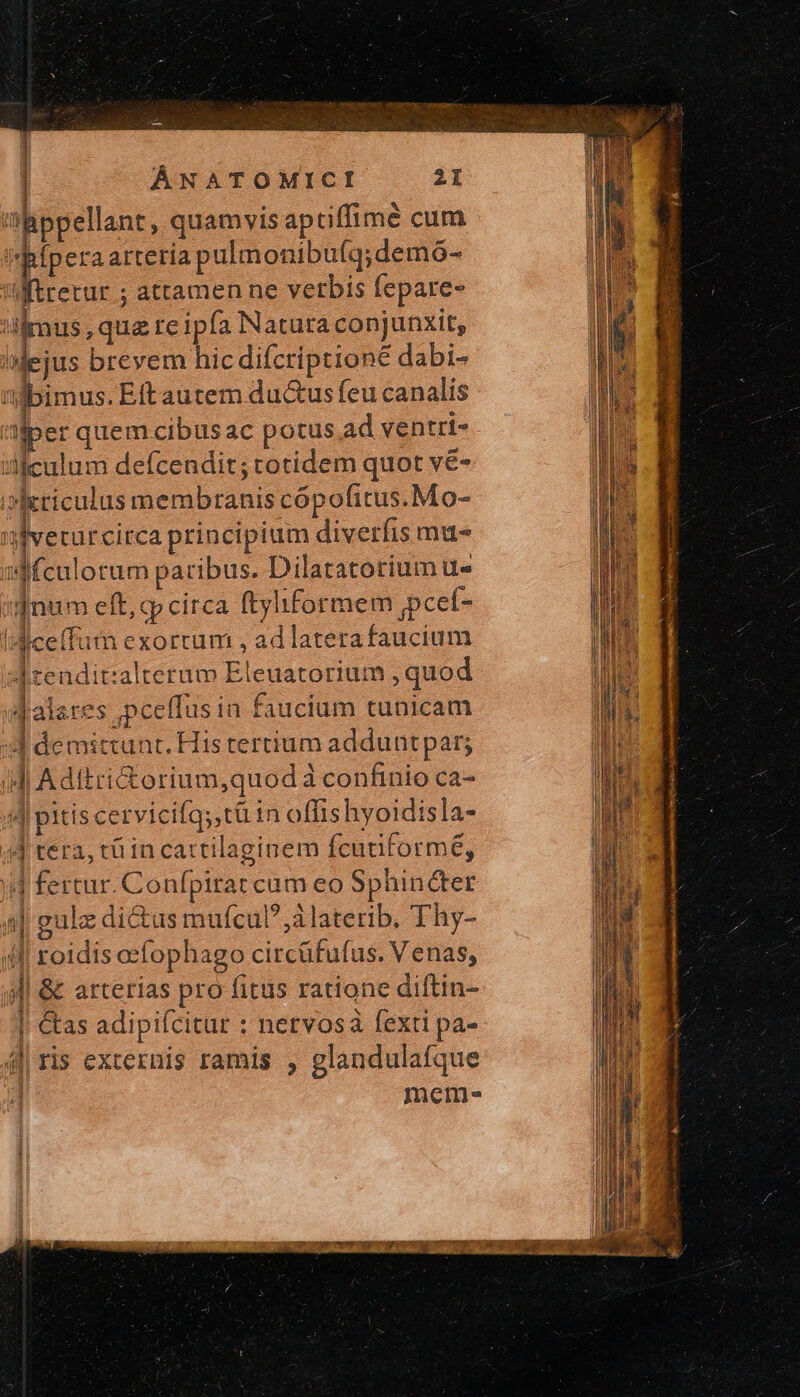 ANATOMICI 21
appellant, quamvis aptiſſimè cum
aſpera arteria pulmonibuſq; demõ-
ſtretur ; attamen ne verbis ſepare-
mus, quæ re ipſa Natura conjunxit,
ejus brevem hic diſcriptionẽ dabi-
bimus. Eſt autem ductus ſeu canalis
per quem cibus ac potus ad ventri-
culum deſcendit; totidem quot vẽ-
triculus membranis cõpoſitus. Mo-
vetur circa principium diverſis mu-
ſculorum paribus. Dilatatorium u-
num eſt, qp circa ſtyliformem ꝓceſ-
ceſſum exortum, ad latera faucium
tendit: alterum Eleuatorium, quod
alares ꝓceſſus in faucium tunicam
demittunt. His tertium addunt par;
Adſtrictorium, quod à confinio ca-
pitis cerviciſq;, tũ in oſſis hyoidis la-
tera, tũ in cartilaginem ſcutiformẽ,
fertur. Conſpirat cum eo Sphincter
gulæ dictus muſcul⁹, à laterib. Thy-
roidis œſophago circũfuſus. Venas,
& arterias pro ſitus ratione diſtin-
ctas adipiſcitur : nervos à ſexti pa-
ris externis ramis , glandulaſque
mem-